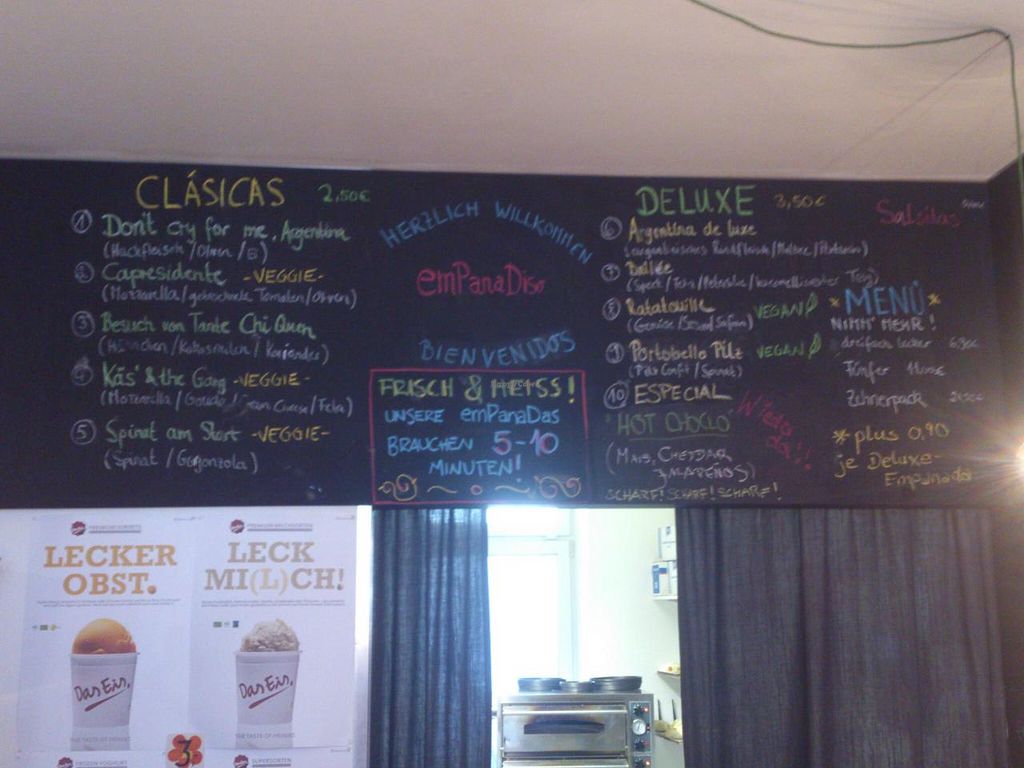 CLÁSICAS 2,50€
1 Don't cry for me, Argentina
(Hackfleisch/Oliven/Ei)
2 Capresidente -VEGGIE-
(Mozzarella/getrocknete Tomaten/Oliven)
3 Besuch von Tante Chi Quen
(Hühnchen/Kokosraspeln/Koriander)
4 Käs' & the Gang -VEGGIE-
(Mozzarella/Gouda/Cream Cheese/Feta)
5 Spinat am Start -VEGGIE-
(Spinat/Gorgonzola)
HERZLICH WILLKOMMEN
emPanaDiso
BIENVENIDOS
FRISCH & HEISS!
UNSERE emPanaDas
BRAUCHEN 5-10
MINUTEN!
DELUXE 3,50€
6 Argentina de luxe
7
8 Ratatouille VEGAN
9 Portobello Pilz VEGAN
(Pilz Confit/Spinat)
10 ESPECIAL
HOT CHOCLO
(MAIS, CHEDDAR,
JALAPEÑOS)
SCHARF! SCHARF! SCHARF!
Wieder da!!
Salsitas
*MENÜ*
NIMM MEHR!
dreifach lecker
Fünfer
Zehnerpack
* plus 0,90
je Deluxe-
Empanada
LECKER
OBST.
Das Eis.
THE TASTE OF HEIMAT
FROZEN YOGHURT
LECK
MI(L)CH!
Das Eis.
THE TASTE OF HEIMAT
SUPERSORTEN
3